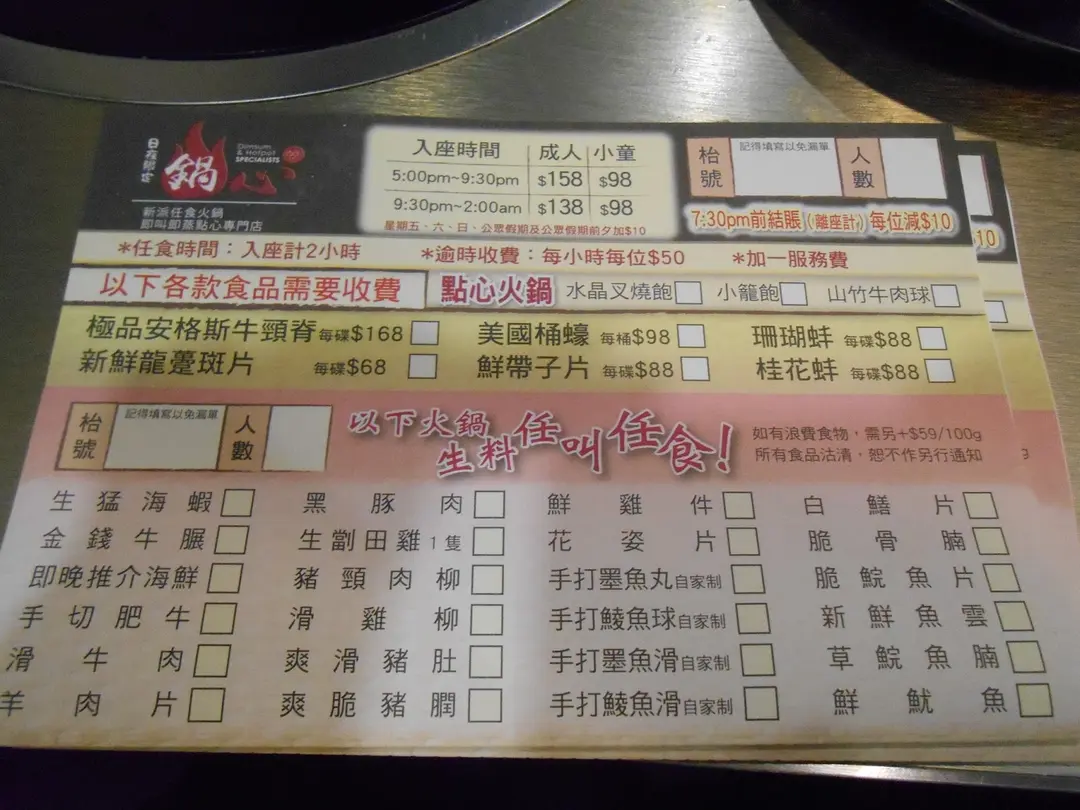 鍋心
Dimsum
& Hotpot
SPECIALISTS
新派任食火鍋
即叫即蒸點心專門店
入座時間 成人 小童
5:00pm~9:30pm $158 $98
9:30pm~2:00am $138 $98
星期五、六、日、公眾假期及公眾假期前夕加$10
枱號 記得填寫以免漏單 人數
7:30pm前結賬(離座計)每位減$10
*任食時間：入座計2小時 *逾時收費：每小時每位$50 *加一服務費
以下各款食品需要收費 點心火鍋 水晶叉燒飽 小籠飽 山竹牛肉球
極品安格斯牛頸脊 每碟$168 美國桶蠔 每桶$98 珊瑚蚌 每碟$88
新鮮龍躉斑片 每碟$68 鮮帶子片 每碟$88 桂花蚌 每碟$88
枱號 記得填寫以免漏單 人數
以下火鍋生料任叫任食！
如有浪費食物，需另+$59/100g
所有食品沽清，恕不作另行通知
生猛海蝦 黑豚肉 鮮雞件 白鱔片
金錢牛𦟌 生劏田雞1隻 花姿片 脆骨腩
即晚推介海鮮 豬頸肉柳 手打墨魚丸自家制 脆鯇魚片
手切肥牛 滑雞柳 手打鯪魚球自家制 新鮮魚雲
滑牛肉 爽滑豬肚 手打墨魚滑自家制 草鯇魚腩
羊肉片 爽脆豬膶 手打鯪魚滑自家制 鮮魷魚
$10